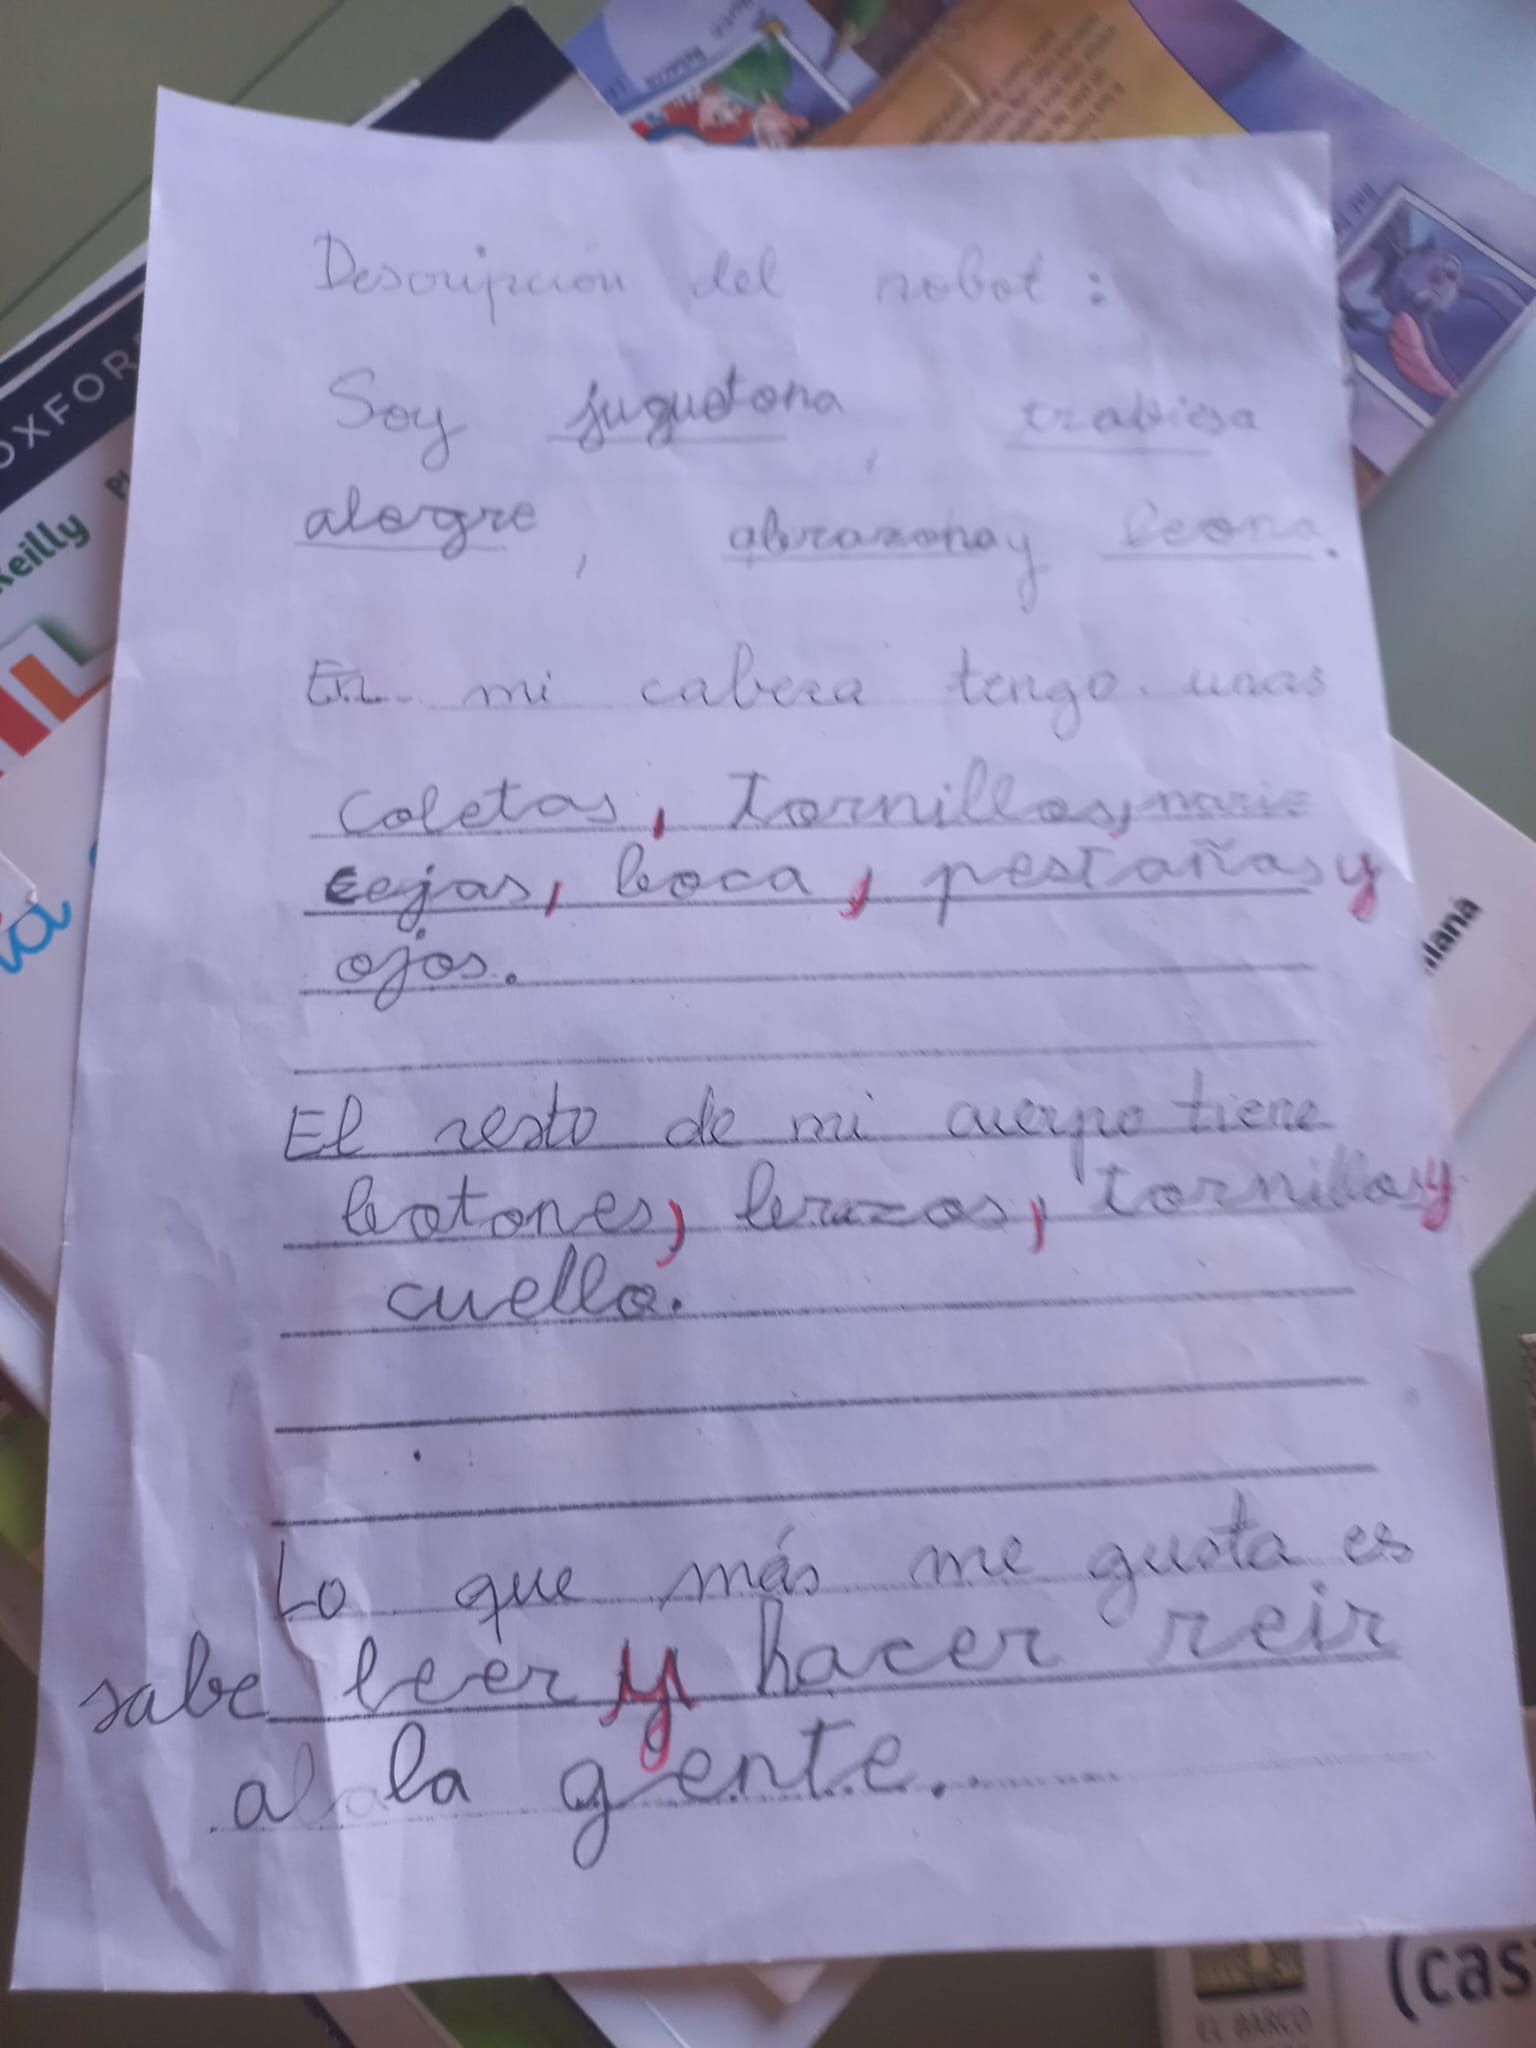 Descripción del robot:
Soy juguetona, trabiesa
alegre, abrazona y
En mi cabeza tengo unas
coletas, tornillos, nariz
cejas, boca, pestañas y
ojos.
El resto de mi cuerpo tiene
botones, brazos, tornillos y
cuello.
Lo que más me gusta es
sabe leer y hacer reir
a la gente.
OXFOR
eilly
(cas
EL BARCO